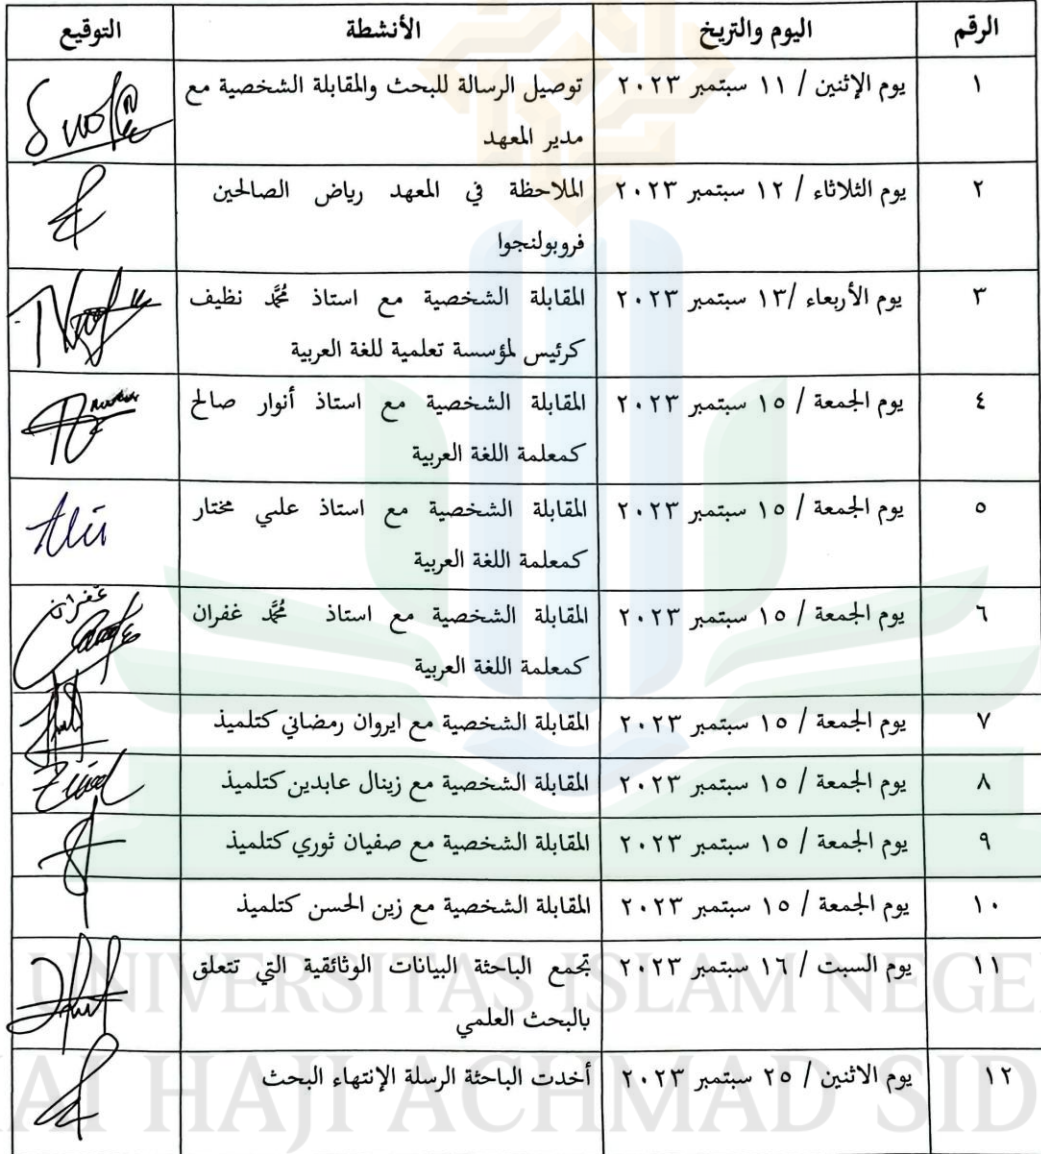 الرقم اليوم والتريخ الأنشطة التوقيع
١ يوم الإثنين / ١١ سبتمبر ٢٠٢٣ توصيل الرسالة للبحث والمقابلة الشخصية مع
مدير المعهد
٢ يوم الثلاثاء / ١٢ سبتمبر ٢٠٢٣ الملاحظة في المعهد رياض الصالحين
فروبولنجوا
٣ يوم الأربعاء /١٣ سبتمبر ٢٠٢٣ المقابلة الشخصية مع استاذ مُحَمَّد نظيف
كرئيس لمؤسسة تعلمية للغة العربية
٤ يوم الجمعة / ١٥ سبتمبر ٢٠٢٣ المقابلة الشخصية مع استاذ أنوار صالح
كمعلمة اللغة العربية
٥ يوم الجمعة / ١٥ سبتمبر ٢٠٢٣ المقابلة الشخصية مع استاذ علي مختار
كمعلمة اللغة العربية
Ali
٦ يوم الجمعة / ١٥ سبتمبر ٢٠٢٣ المقابلة الشخصية مع استاذ مُحَمَّد غفران
كمعلمة اللغة العربية
غفران
٧ يوم الجمعة / ١٥ سبتمبر ٢٠٢٣ المقابلة الشخصية مع ايروان رمضاني كتلميذ
٨ يوم الجمعة / ١٥ سبتمبر ٢٠٢٣ المقابلة الشخصية مع زينال عابدين كتلميذ
٩ يوم الجمعة / ١٥ سبتمبر ٢٠٢٣ المقابلة الشخصية مع صفيان ثوري كتلميذ
١٠ يوم الجمعة / ١٥ سبتمبر ٢٠٢٣ المقابلة الشخصية مع زين الحسن كتلميذ
١١ يوم السبت / ١٦ سبتمبر ٢٠٢٣ تجمع الباحثة البيانات الوثائقية التي تتعلق
بالبحث العلمي
١٢ يوم الاثنين / ٢٥ سبتمبر ٢٠٢٣ أخدت الباحثة الرسلة الإنتهاء البحث
NIVERSITAS ISLAM NEGE
AI HAJI ACHMAD SID